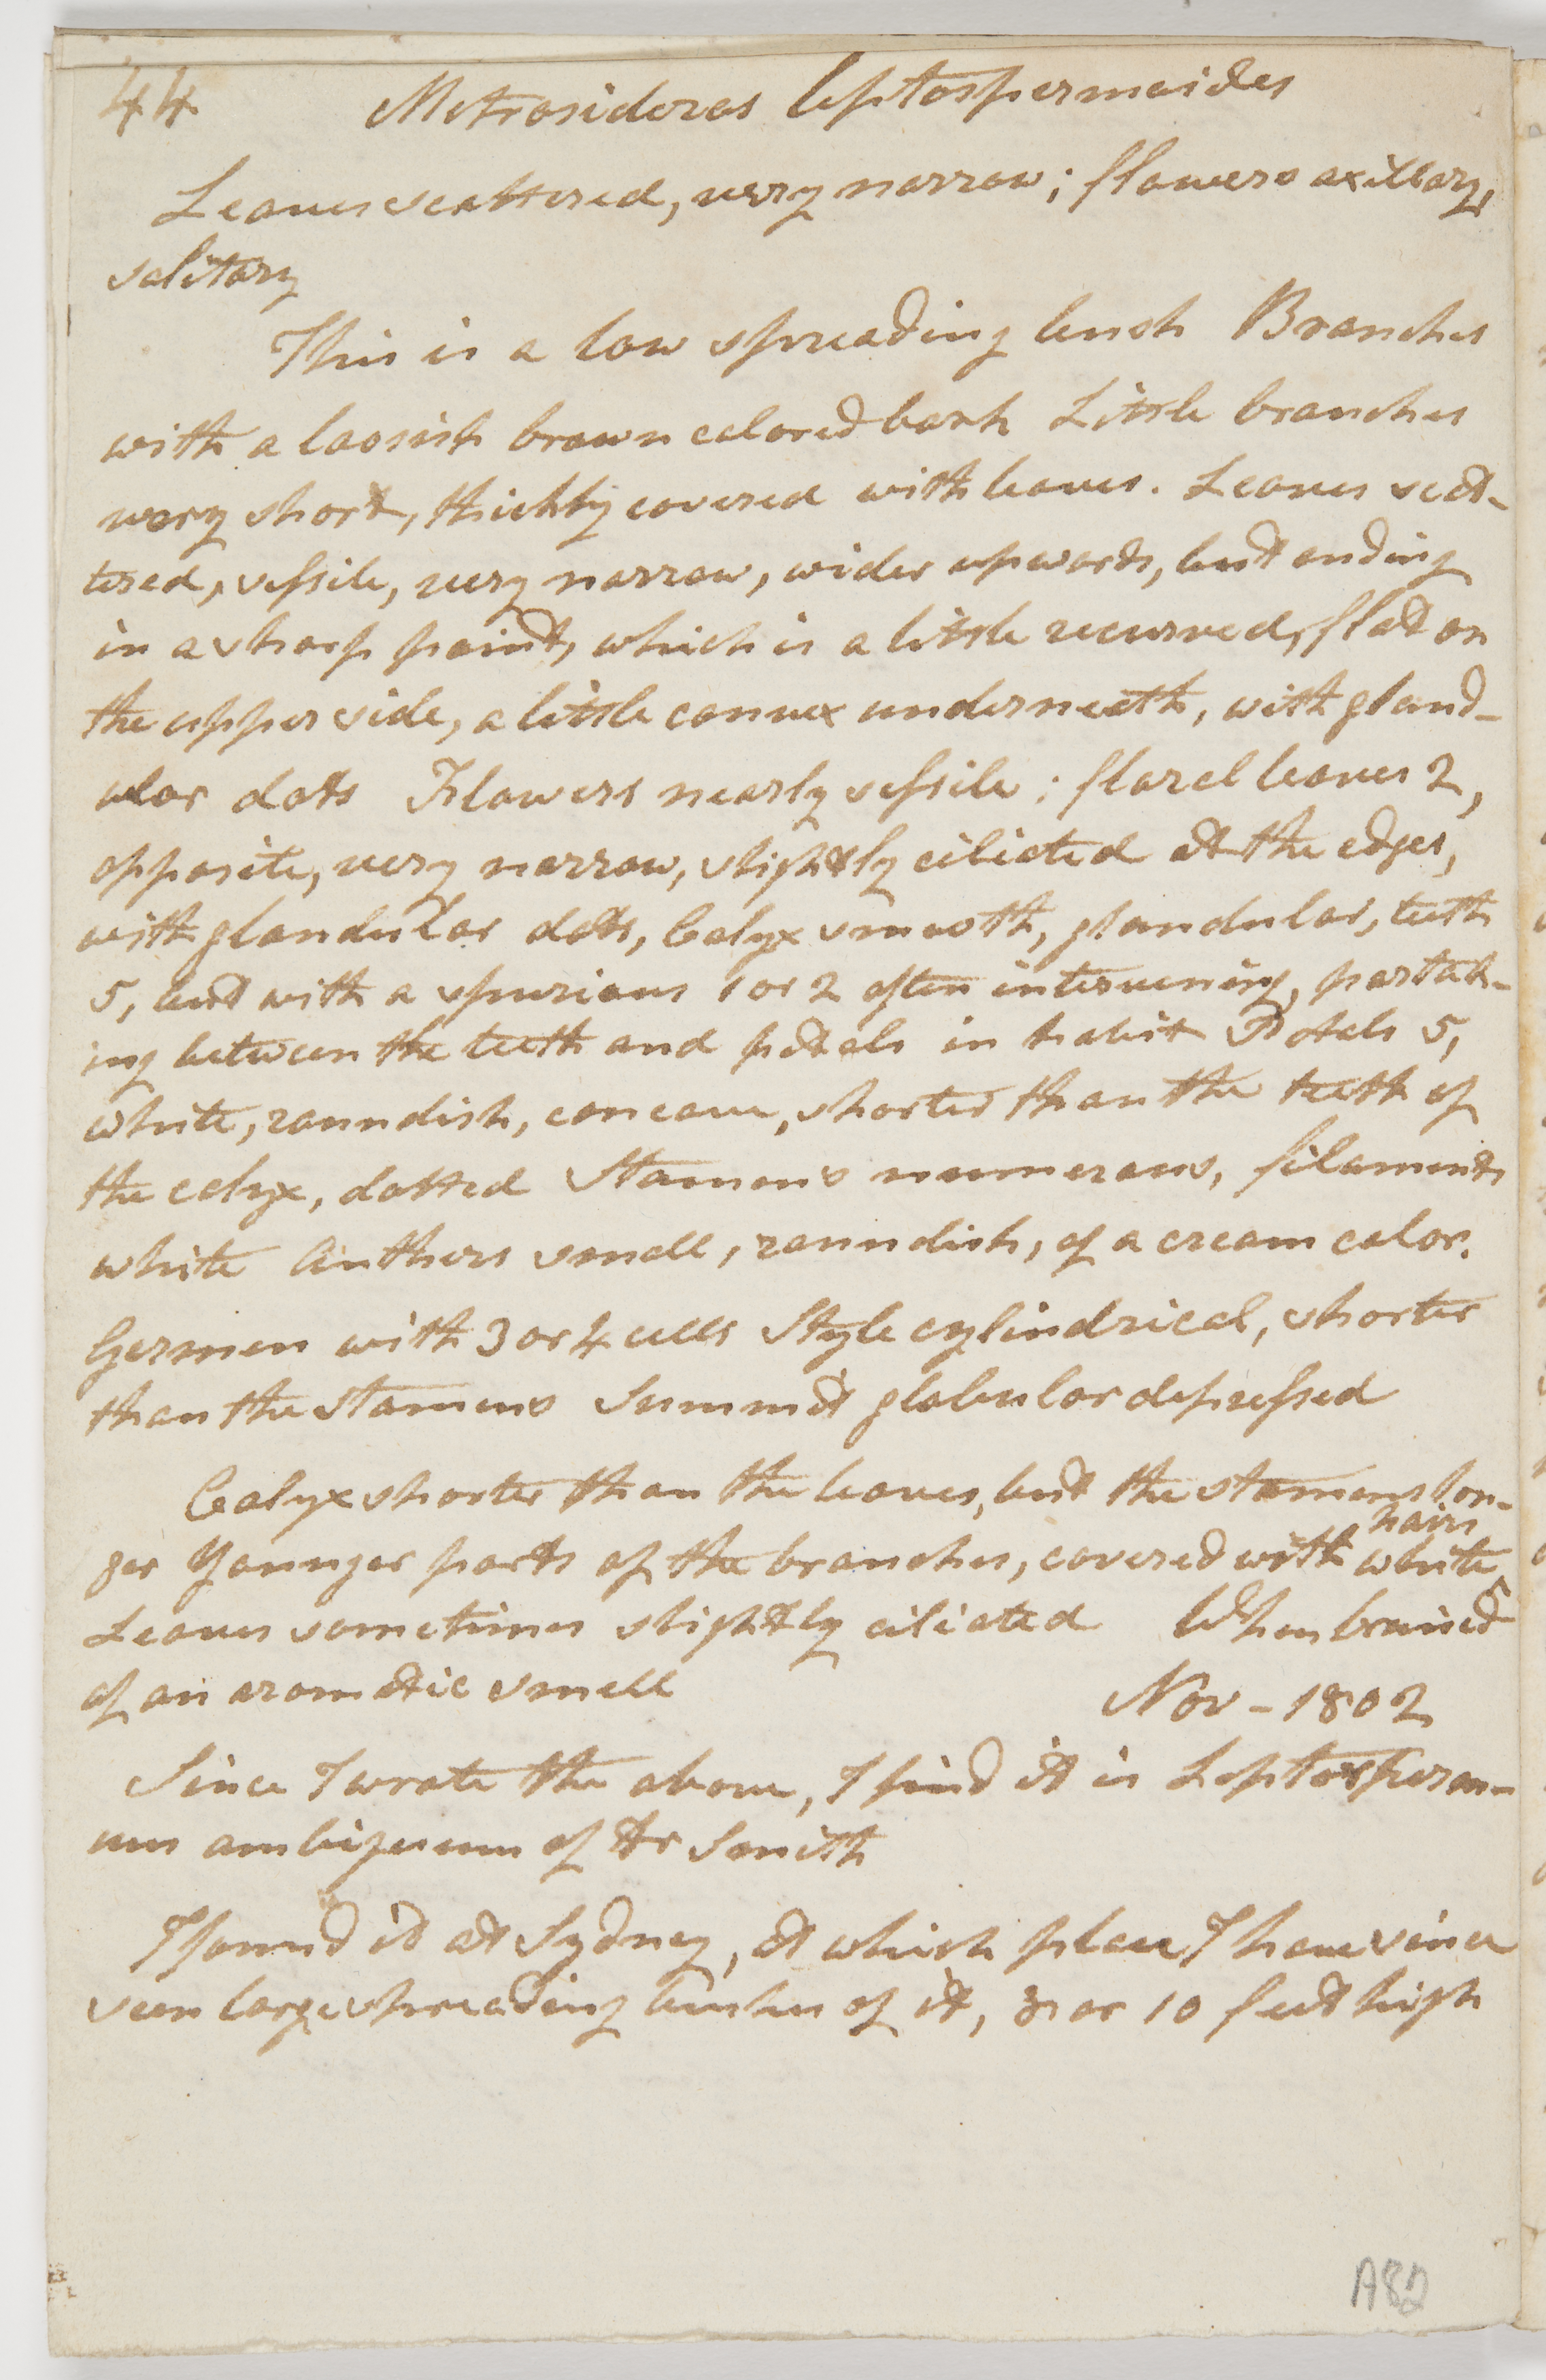 44 Metrosideros leptospermoides
Leaves scattered, very narrow; flowers axillary,
solitary
This is a low spreading bush Branches
with a loosish brown colored bark Little branches
very short, thickly covered with leaves. Leaves scat-
tered, sessile, very narrow, wider upwards, but ending
in a sharp point, which is a little recurved, flat on
the upper side, a little convex underneath, with gland-
ular dots Flowers nearly sessile; floral leaves 2,
opposite, very narrow, slightly ciliated at the edges,
with glandular dots, Calyx smooth, glandular, teeth
5, but with a spurious 1 or 2 often intervening, partak-
ing between the teeth and petals in habit Petals 5,
white, roundish, concave, shorter than the teeth of
the calyx, dotted Stamens numerous, filaments
white Anthers small, roundish, of a cream color.
Germen with 3 or 4 cells Style cylindrical, shorter
than the stamens Summit globular depressed
Calyx shorter than the leaves, but the stamens lon-
hairs
ger Younger parts of the branches, covered with white ^
Leaves sometimes slightly ciliated When bruised
of an aromatic smell Nov - 1802
Since I wrote the above, I find it is Leptosperm-
um ambiguum of Dr Smith
I found it at Sydney, at which place I have since
seen large spreading bushes of it, 8 or 10 feet high
A82